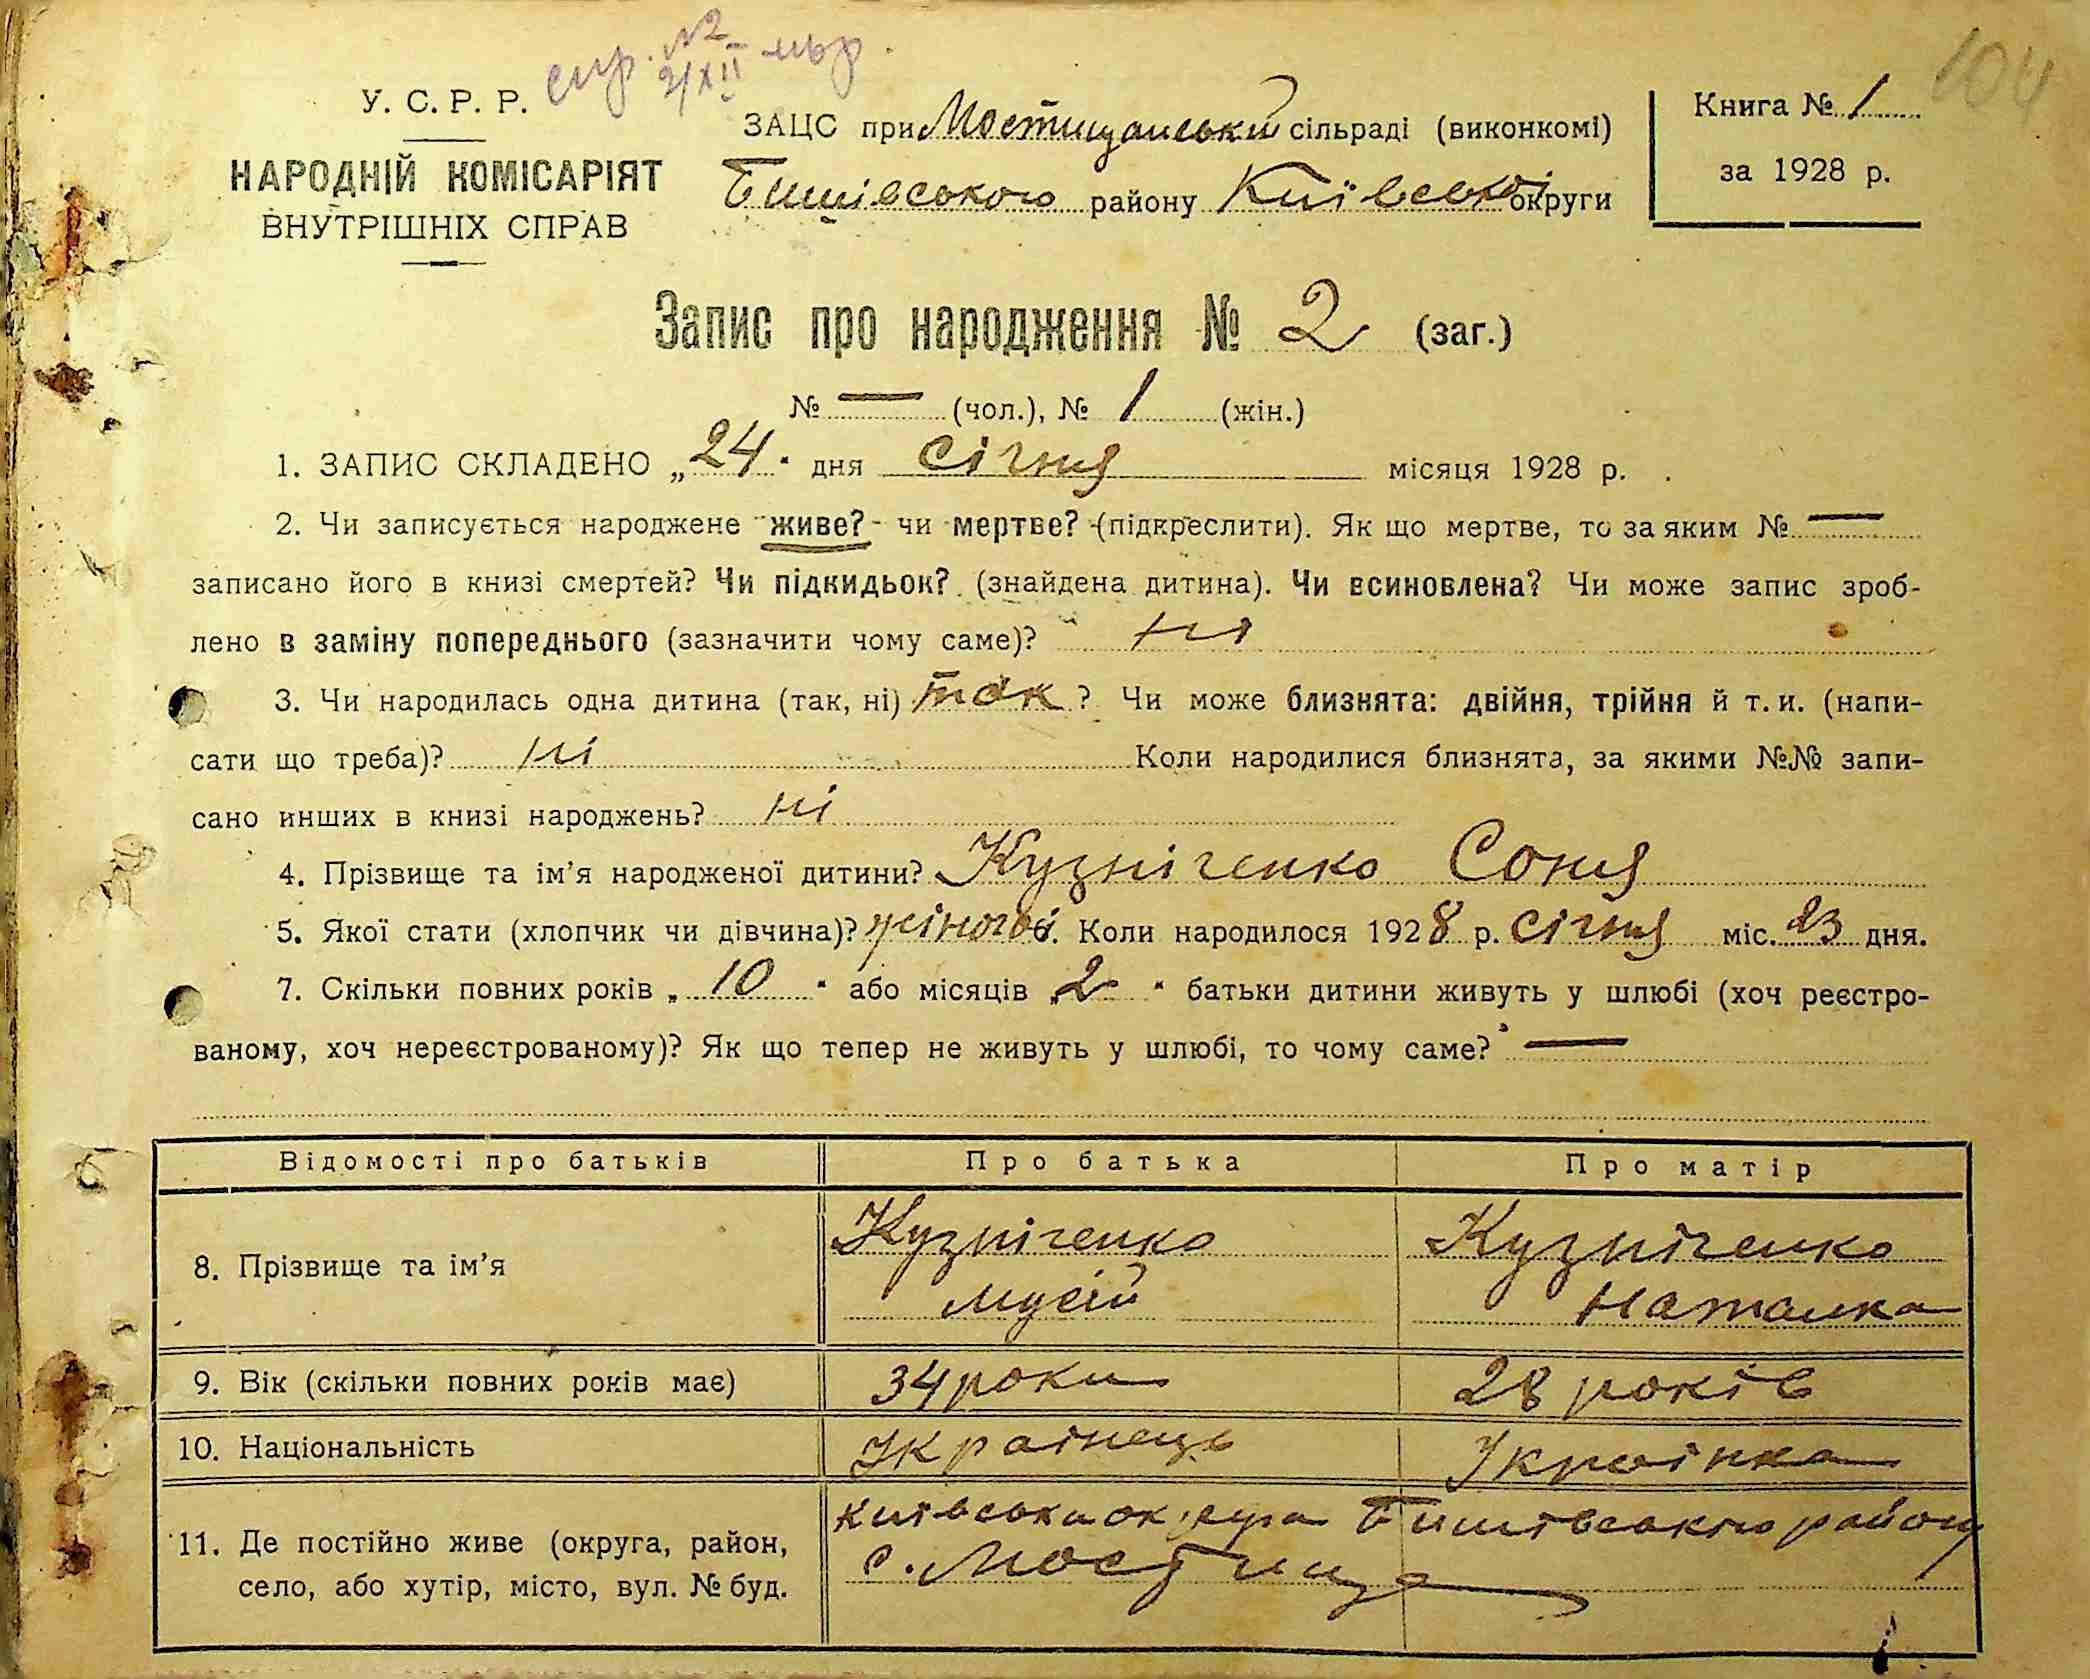 104
У. С. Р. Р.
НАРОДНІЙ КОМІСАРІЯТ
ВНУТРІШНІХ СПРАВ
ЗАЦС при Мостищанській сільраді (виконкомі)
Бишівського району Київської округи
Книга № 1
за 1928 р.
Запис про народження № 2 (заг.)
№ — (чол.), № 1 (жін.)
1. ЗАПИС СКЛАДЕНО „24" дня січня місяця 1928 р.
2. Чи записується народжене живе? чи мертве? (підкреслити). Як що мертве, то за яким № —
записано його в книзі смертей? Чи підкидьок? (знайдена дитина). Чи всиновлена? Чи може запис зроб-
лено в заміну попереднього (зазначити чому саме)? ні
3. Чи народилась одна дитина (так, ні) так ? Чи може близнята: двійня, трійня й т. и. (напи-
сати що треба)? ні Коли народилися близнята, за якими №№ запи-
сано инших в книзі народжень? ні
4. Прізвище та ім'я народженої дитини? Кузніченко Соня
5. Якої стати (хлопчик чи дівчина)? жіночої. Коли народилося 1928 р. січня міс. 23 дня.
7. Скільки повних років „10" або місяців „2" батьки дитини живуть у шлюбі (хоч реєстро-
ваному, хоч нереєстрованому)? Як що тепер не живуть у шлюбі, то чому саме? —
Відомості про батьків Про батька Про матір
8. Прізвище та ім'я Кузніченко Мусій Кузніченко Наталка
9. Вік (скільки повних років має) 34 роки 28 років
10. Національність Українець Українка
11. Де постійно живе (округа, район, Київська округа Бишівського району
село, або хутір, місто, вул. № буд. с. Мостище